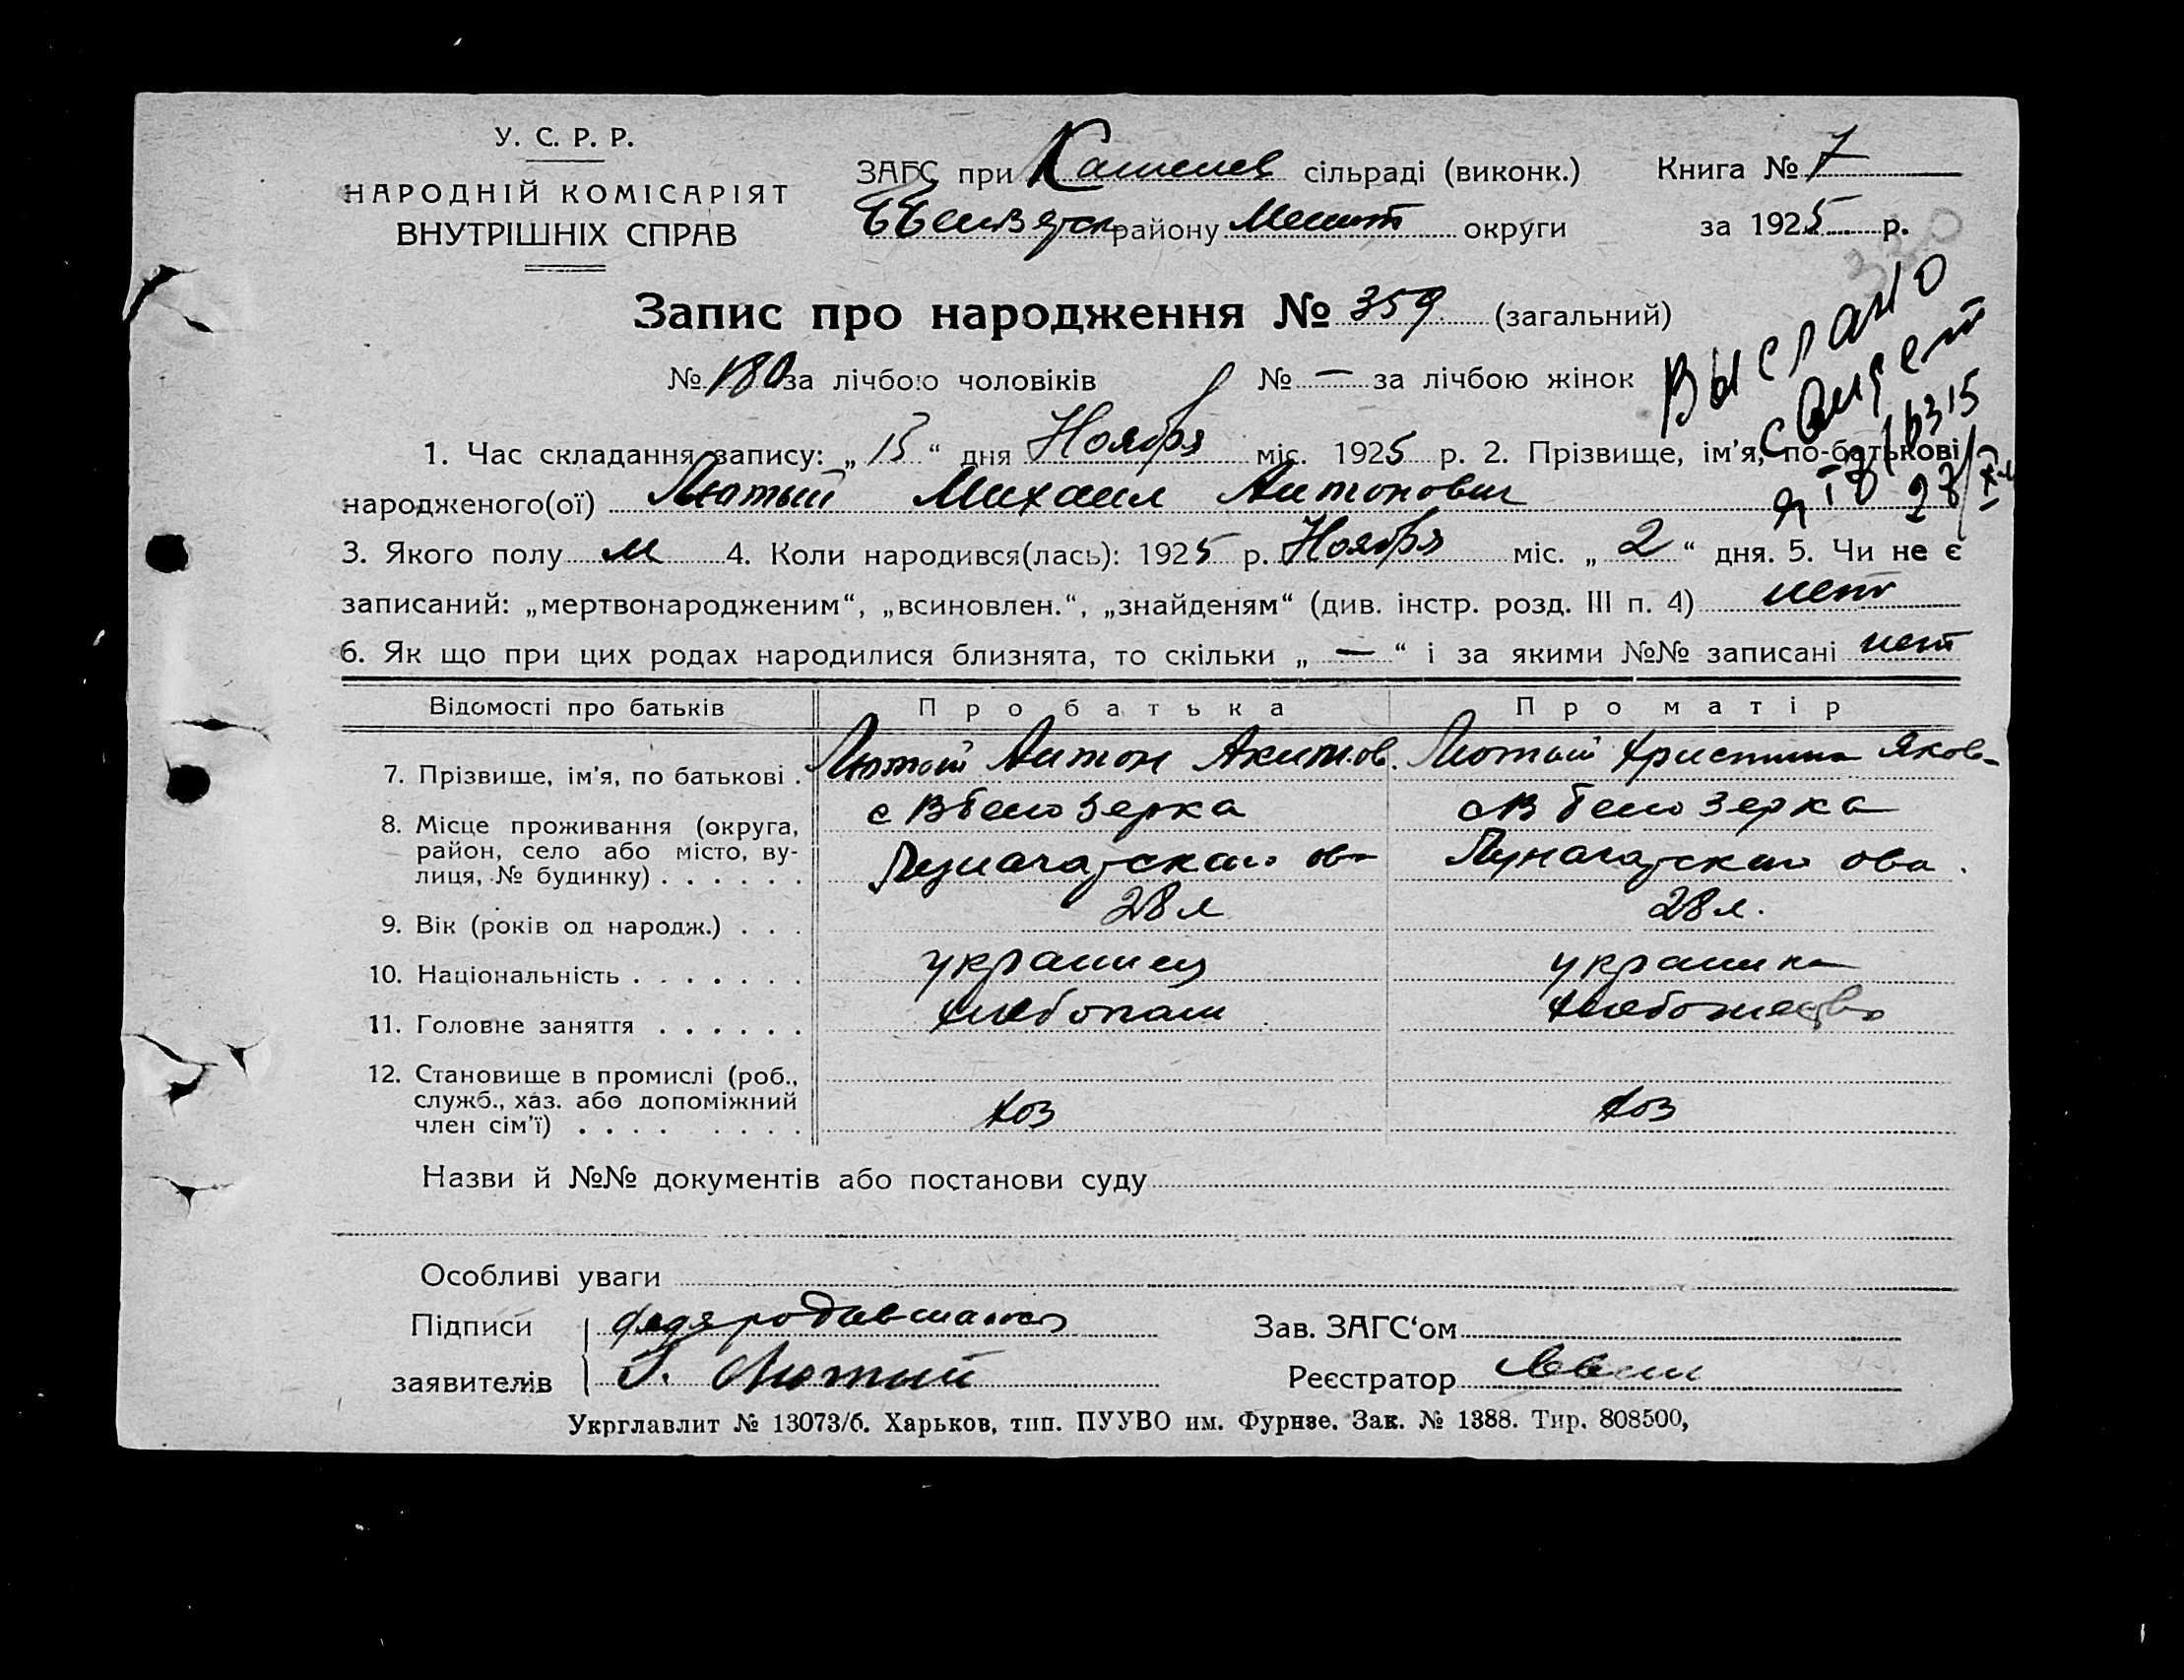 У. С. Р. Р.
НАРОДНІЙ КОМІСАРІЯТ
ВНУТРІШНІХ СПРАВ
ЗАГС при сільраді (виконк.)
району Мелит округи
Книга № 7
за 1925 р.
330
Запис про народження № 359 (загальний)
№ 180 за лічбою чоловіків № — за лічбою жінок
Выслано
свидет
1. Час складання запису: „ 15 “ дня Ноября міс. 1925 р. 2. Прізвище, ім'я, по-батькові
народженого(ої) Лютый Михаил Антонович
3. Якого полу м 4. Коли народився(лась): 1925 р. Ноября міс. „ 2 “ дня. 5. Чи не є
записаний: „мертвонародженим“, „всиновлен.“, „знайденям“ (див. інстр. розд. III п. 4) нет
6. Як що при цих родах народилися близнята, то скільки „ — “ і за якими №№ записані нет
Відомості про батьків Про батька Про матір
7. Прізвище, ім'я, по батькові . Лютый Антон Акимов. Лютый Христина Яков-
8. Місце проживання (округа, с В Белозерка с В Белозерка
район, село або місто, ву-
лиця, № будинку) . . . . . .
9. Вік (років од народж.) . . . 28 л 28 л.
10. Національність . . . . . . . украинец украинка
11. Головне заняття . . . . . . хлебопаш
12. Становище в промислі (роб.,
служб., хаз. або допоміжний
член сім'ї) . . . . . . . . хоз хоз
Назви й №№ документів або постанови суду
Особливі уваги
Підписи
заявителів Лютый
Зав. ЗАГС‘ом
Реєстратор
Укрглавлит № 13073/б. Харьков, тип. ПУУВО им. Фрунзе. Зак. № 1388. Тир. 808500,